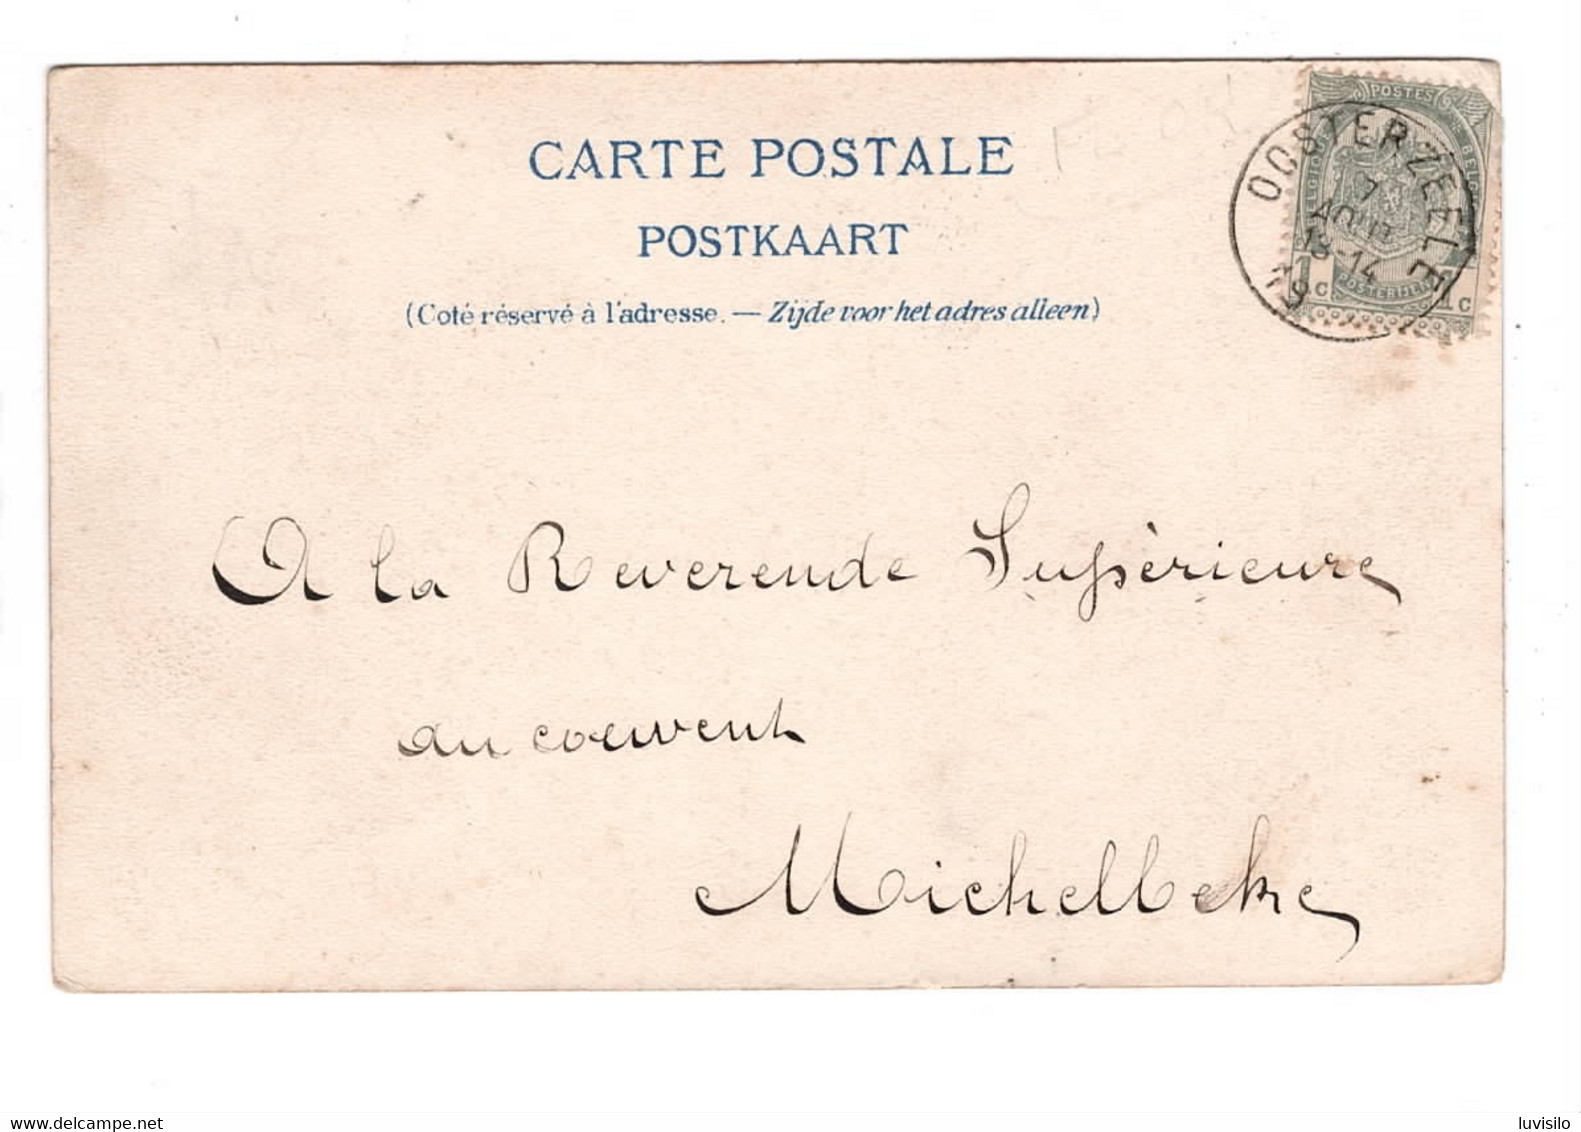 CARTE POSTALE
POSTKAART
(Coté réservé à l'adresse. — Zijde voor het adres alleen)
POSTES
BELGIQUE
POSTERIJEN
1c 1c
OOSTERZEELE
7
AOUT
13-14
A la Reverende Supérieure
au couvent
Michelbeke
www.delcampe.net
luvisilo